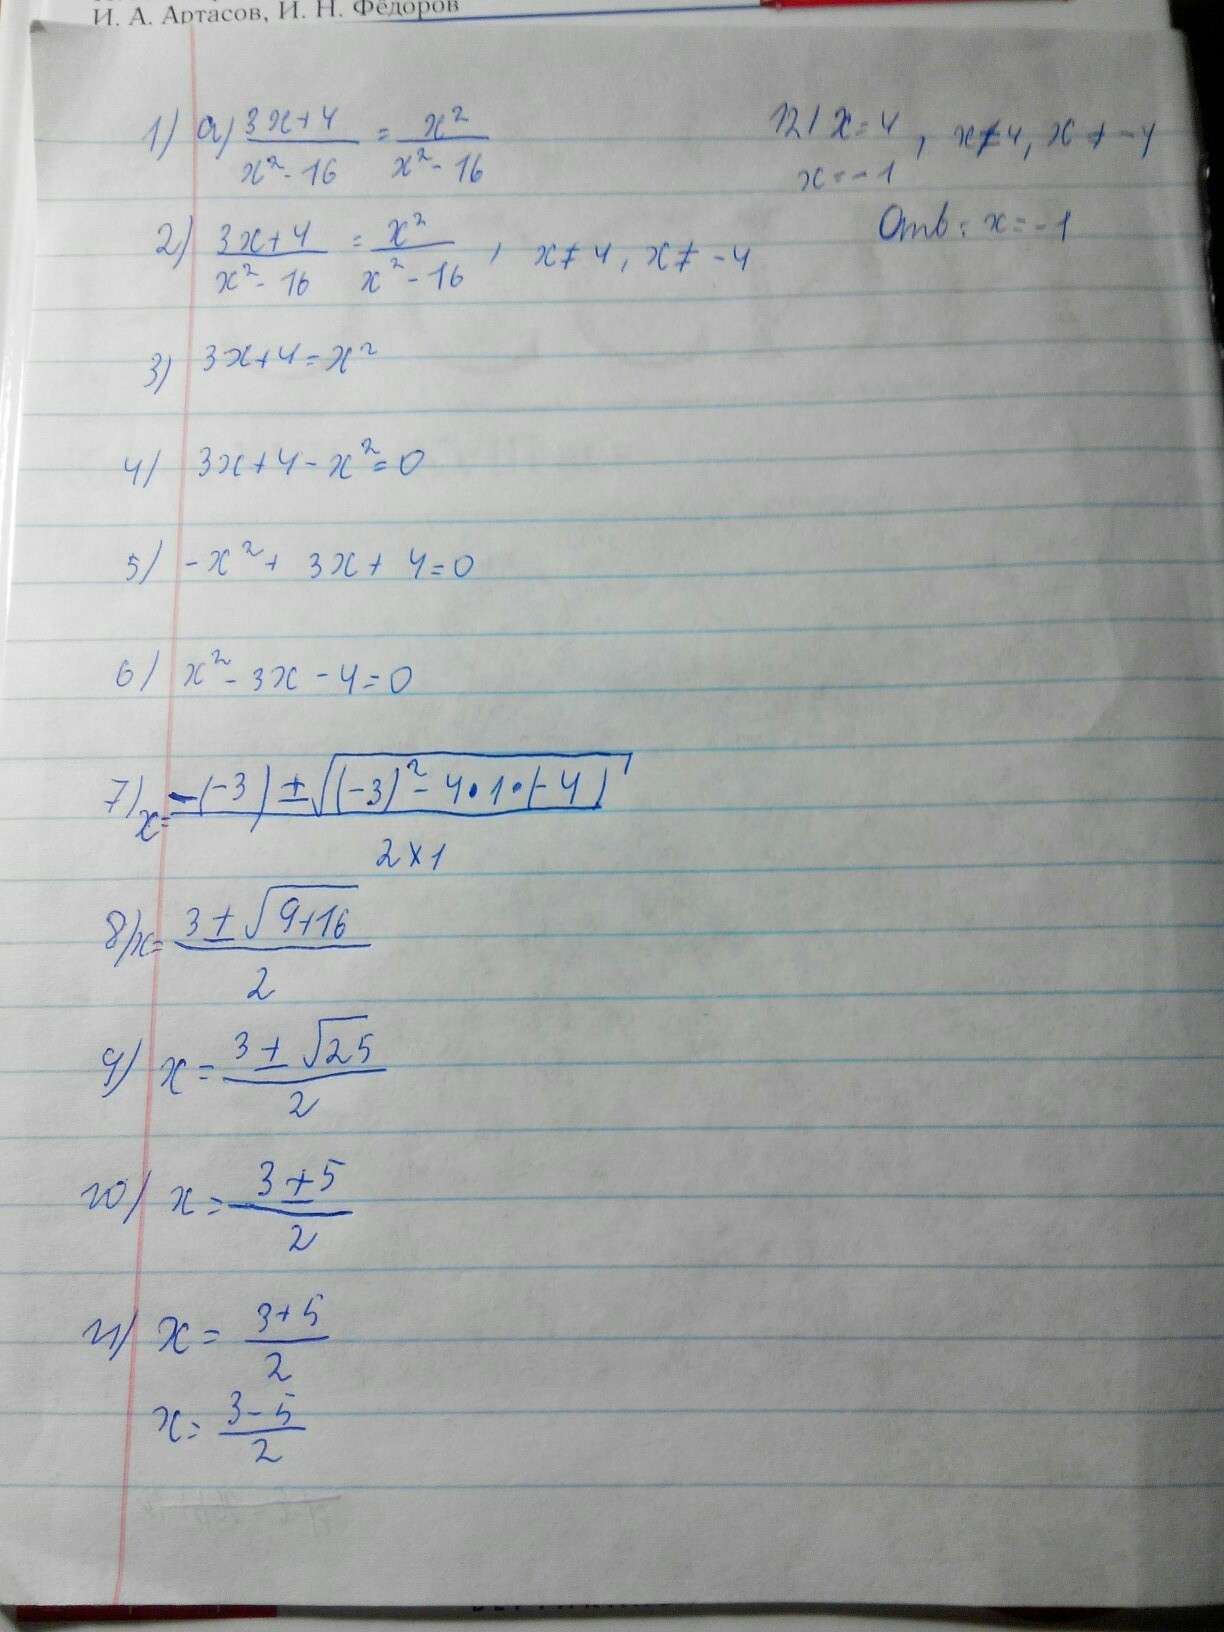 И. А. Артасов, И. Н. Фёдоров
1) а) (3x+4)/(x²-16) = x²/(x²-16)
2) (3x+4)/(x²-16) = x²/(x²-16) , x≠4, x≠-4
3) 3x+4=x²
4) 3x+4-x²=0
5) -x²+3x+4=0
6) x²-3x-4=0
7) x=(-(-3)±√((-3)²-4•1•(-4)))/(2×1)
8) x=(3±√(9+16))/2
9) x=(3±√25)/2
10) x=(3±5)/2
11) x=(3+5)/2
x=(3-5)/2
12) x=4 , x≠4, x≠-4
x=-1
Отв: x=-1